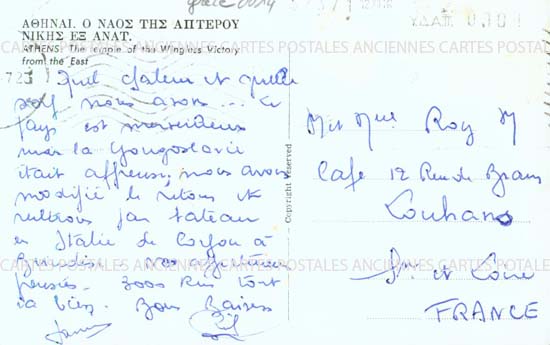 grèce 0014
ΑΘΗΝΑΙ. Ο ΝΑΟΣ ΤΗΣ ΑΠΤΕΡΟΥ
ΝΙΚΗΣ ΕΞ ΑΝΑΤ.
ATHENS: The temple of the Wingless Victory
from the East
CARTES POSTALES ANCIENNES CARTES POSTALES ANCIENNES CARTES POSTALES
Quel chaleur et quelle
soif nous avons... Le
pays est merveilleux
mais la Yougoslavie
était affreuse, nous avons
modifié le retour et
rentrons par bateau
en Italie de Corfou à
Brindisi. nos affectueuses
pensées. 3000 Kms tout
va bien. Bons Baisers
Copyright Reserved
M et Mme Roy M
Café 12 Rue de Bram
Louhans
CARTES POSTALES ANCIENNES CARTES POSTALES ANCIENNES CARTES POSTALES
Sne et Loire
FRANCE